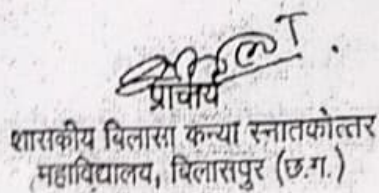 प्राचार्य
शासकीय बिलासा कन्या स्नातकोत्तर
महाविद्यालय, बिलासपुर (छ.ग.)